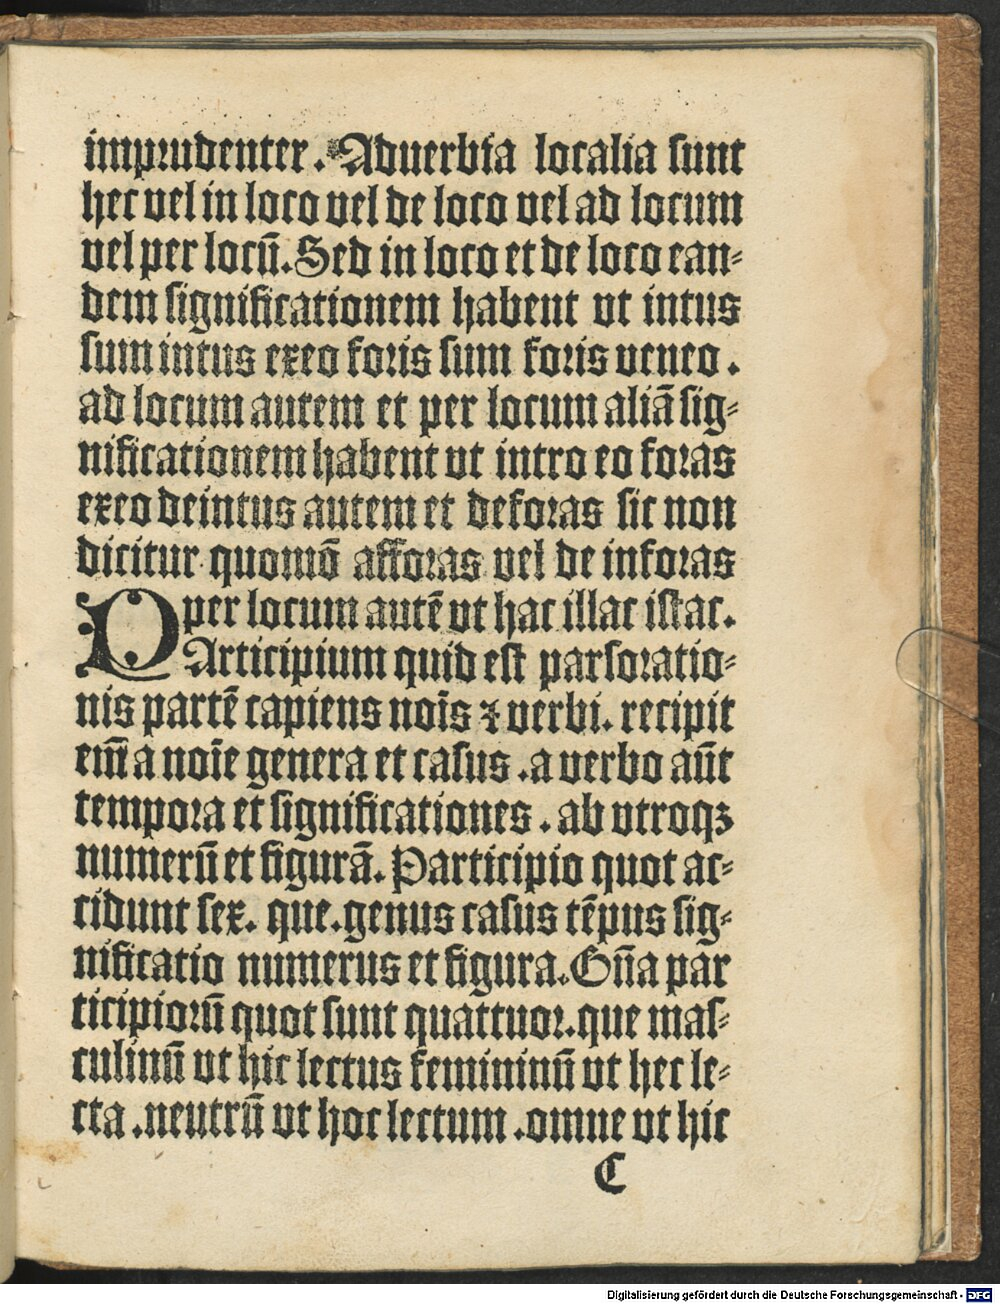 imprudenter. Aduerbia localia sunt
hec vel in loco vel de loco vel ad locum
vel per locū. Sed in loco et de loco ean⸗
dem significationem habent vt intus
sum intus exeo foris sum foris veneo.
ad locum autem et per locum aliā sig⸗
nificationem habent vt intro eo foras
exeo deintus autem et deforas sic non
dicitur quomō afforas vel de inforas
per locum autē vt hac illac istac.
PArticipium quid est pars oratio⸗
nis partē capiens noīs ⁊ verbi. recipit
em̄ a noīe genera et casus. a verbo aūt
tempora et significationes. ab vtroqꝫ
numerū et figurā. Participio quot ac⸗
cidunt sex. que. genus casus tēpus sig⸗
nificatio numerus et figura. Gn̄a par
ticipiorū quot sunt quattuor. que mas⸗
culinū vt hic lectus femininū vt hec le⸗
cta. neutrū vt hoc lectum. omne vt hic
C
Digitalisierung gefördert durch die Deutsche Forschungsgemeinschaft - DFG